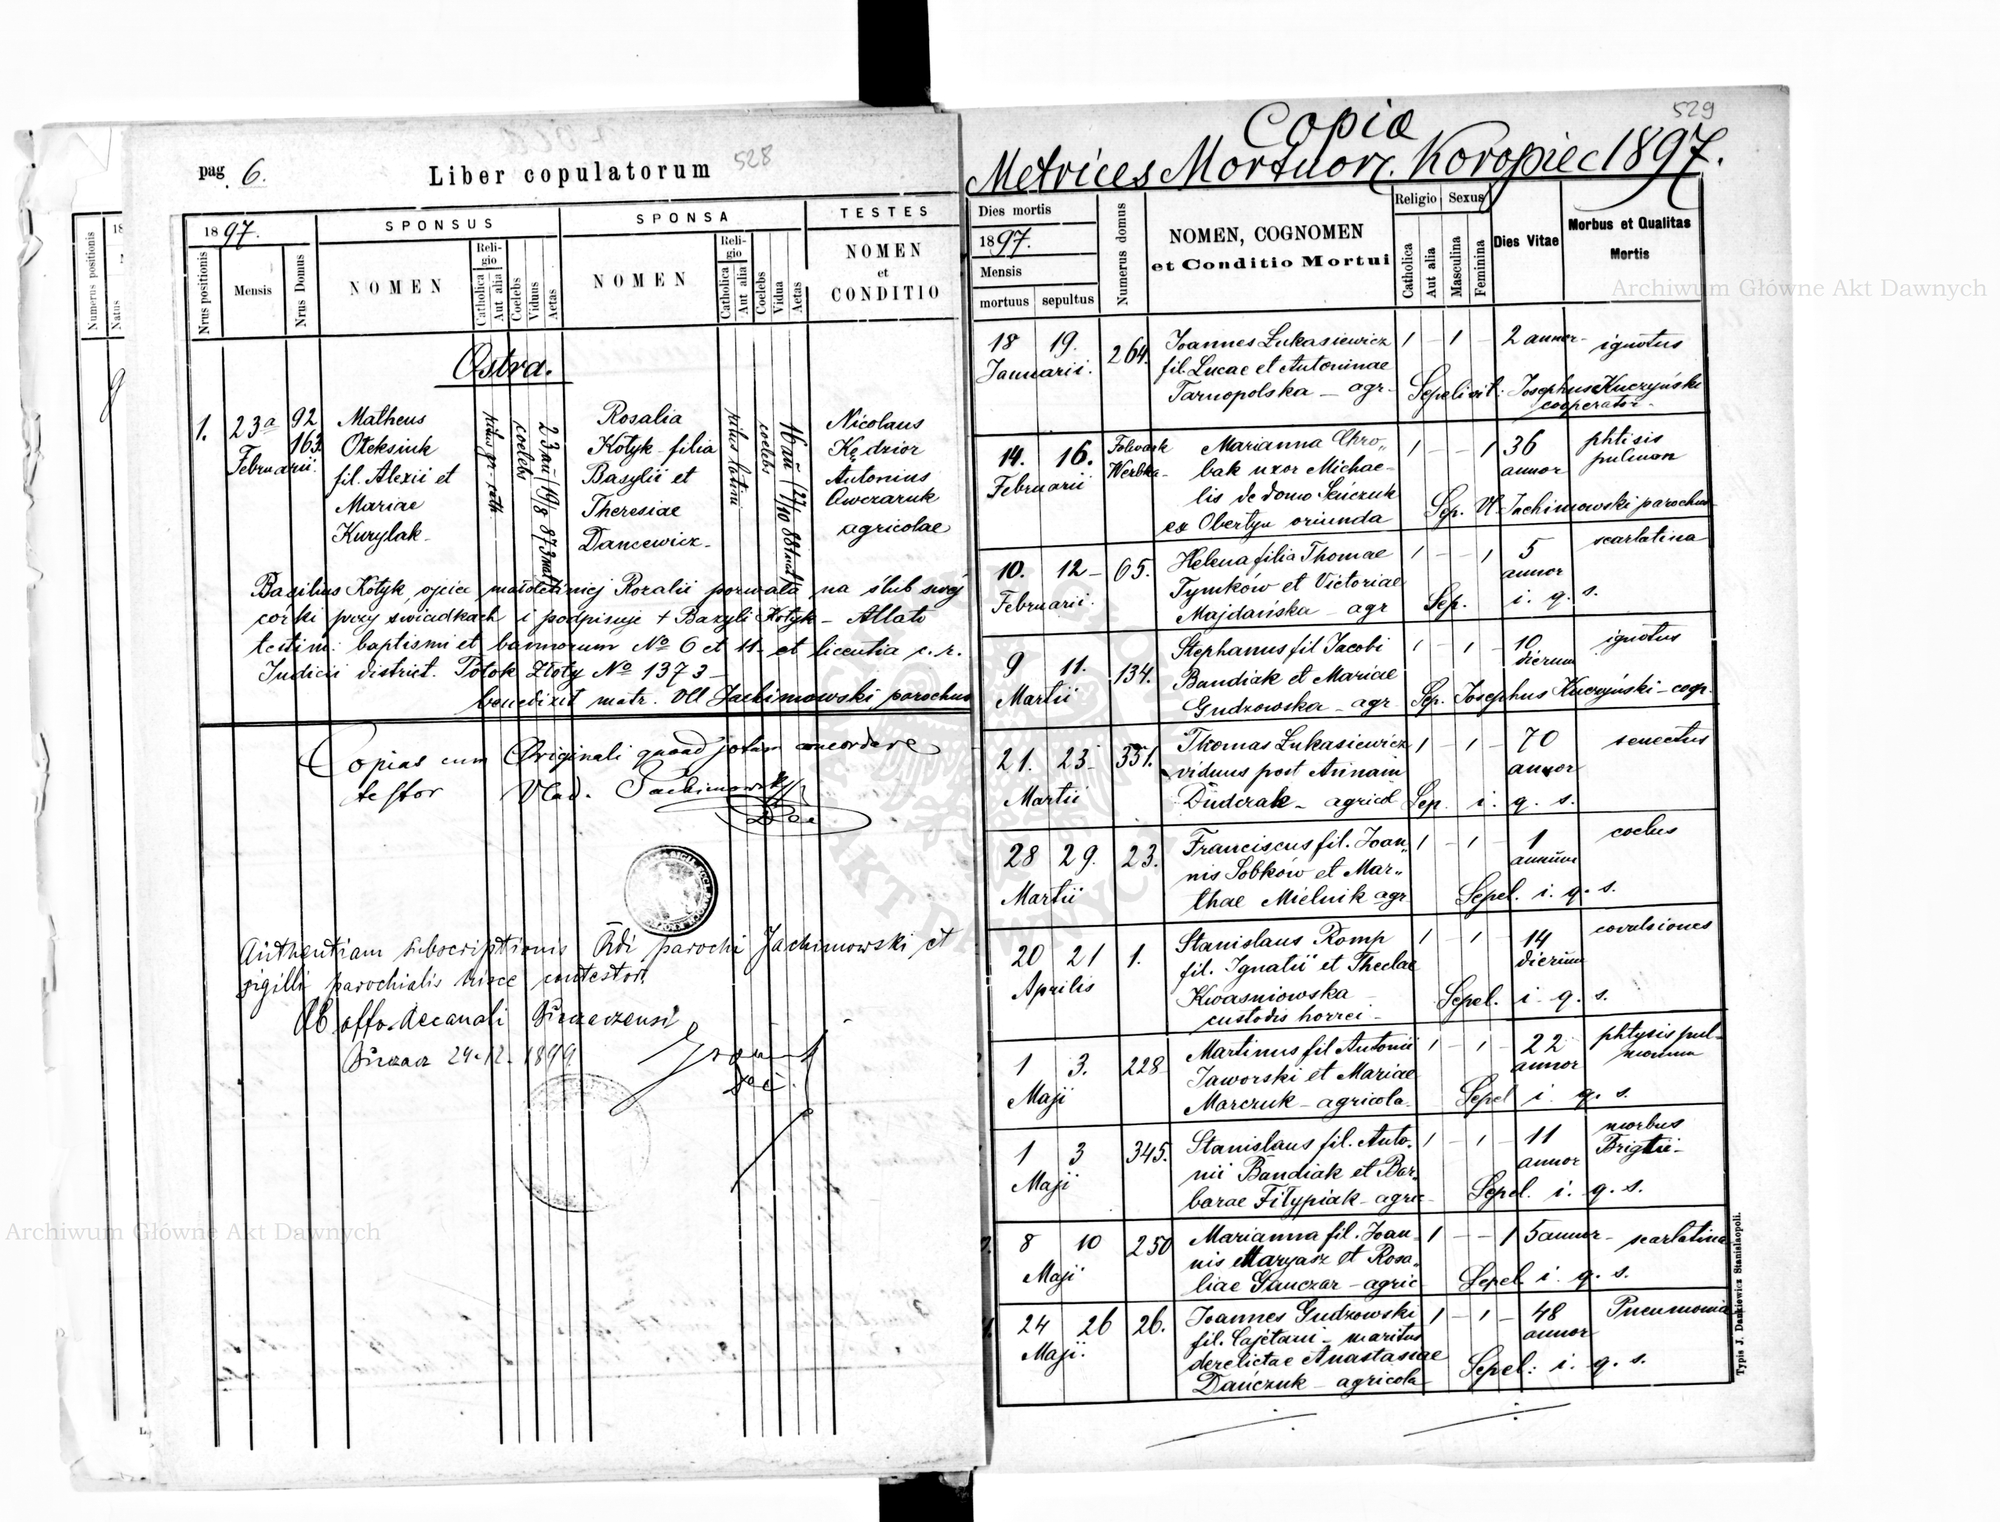 528
pag 6.
Liber copulatorum
1897.
SPONSUS
SPONSA
TESTES
Nrus positionis
Mensis
Nrus Domus
NOMEN
Religio
Catholica
Aut alia
Coelebs
Viduus
Aetas
NOMEN
Religio
Catholica
Aut alia
Coelebs
Vidua
Aetas
NOMEN
et
CONDITIO
Numerus positionis
Natus
Ostra.
1.
23a
Februarii.
92
163.
Matheus
Oleksiuk
fil. Alexii et
Mariae
Kurylak
ritus gr. cath.
coelebs
Rosalia
Kotyk filia
Basylii et
Theresiae
Dancewicz
ritus latini
coelebs
Nicolaus
Kędzior
Antonius
Owczaruk
agricolae
Basilius Kotyk, ojciec małoletniej Rozalii pozwala na ślub swej
córki przy świadkach i podpisuje + Bazyli Kotyk - Allato
testim. baptismi et bannorum No 6 et 11 - et licentia c. r.
Judicii district. Potok Złoty No 1373 -
benedixit matr. Vl Jachimowski parochus
Copias cum Originali quoad totum concordare
testor Vlad. Jachimowski
Dec
Authentiam subscriptionis Rdi parochi Jachimowski et
sigilli parochialis hisce contestor
Ab offo. decanali Buczaczensi
Buczacz 24-12-1899
Dec.
529
Copia
Metrices Mortuor. Koropiec 1897.
Dies mortis
1897.
Mensis
mortuus sepultus
Numerus domus
NOMEN, COGNOMEN
et Conditio Mortui
Religio
Catholica
Aut alia
Sexus
Masculina
Feminina
Dies Vitae
Morbus et Qualitas
Mortis
18 19. 264. Joannes Łukasiewicz 1 - 1 - 2 annor. ignotus
Januarii. fil. Lucae et Antoninae
Tarnopolska - agr. Sepelivit: Josephus Kuczyński
cooperator.
14. 16. Folwark Werbka Marianna Chro- 1 - - 1 36 annor phtisis pulmon
Februarii bak uxor Michae-
lis de domo Seńczuk
ex Obertyn oriunda Sep. Vl. Jachimowski parochus
10. 12 - 65. Helena filia Thomae 1 - - 1 5 annor scarlatina
Februarii. Tymków et Victoriae
Majdańska - agr Sep. i. q. s.
9 11. 134. Stephanus fil Jacobi 1 - 1 - 10 dierum ignotus
Martii Bandiak et Mariae
Gudzowska - agr Sep. Josephus Kuczyński - coop.
21. 23. 351. Thomas Łukasiewicz 1 - 1 - 70 annor senectus
Martii viduus post Annam
Dudczak - agricol Sep. i. q. s.
28 29. 23. Franciscus fil. Joan- 1 - 1 - 1
Martii nis Sobków et Mar-
thae Mielnik agr Sepel. i. q. s.
20 21 1. Stanislaus Romp 1 - 1 - 14 dierum covulsiones
Aprilis fil. Ignatii et Theclae
Kwasniowska Sepel. i. q. s.
custodis horrei -
1 3. 228 Martinus fil Antonii 1 - 1 - 22 annor phtysis pulmonum
Maji Jaworski et Mariae
Marczuk - agricola. Sepel i. q. s.
1 3 345. Stanislaus fil. Anto- 1 - 1 - 11 annor morbus Brigtii -
Maji nii Bandiak et Bar-
barae Filypiak - agric Sepel. i. q. s.
8 10 250 Marianna fil. Joan- 1 - - 1 5 annor - scarlatina
Maji nis Maryasz et Rosa-
liae Ganczar - agric Sepel i. q. s.
24 26 26. Joannes Gudzowski 1 - 1 - 48 annor Pneumonia
Maji. fil. Cajetani - maritus
derelictae Anastasiae
Dańczuk - agricola Sepel: i. q. s.
Typis J. Dankiewicz Stanislaopoli.
Archiwum Główne Akt Dawnych
Archiwum Główne Akt Dawnych